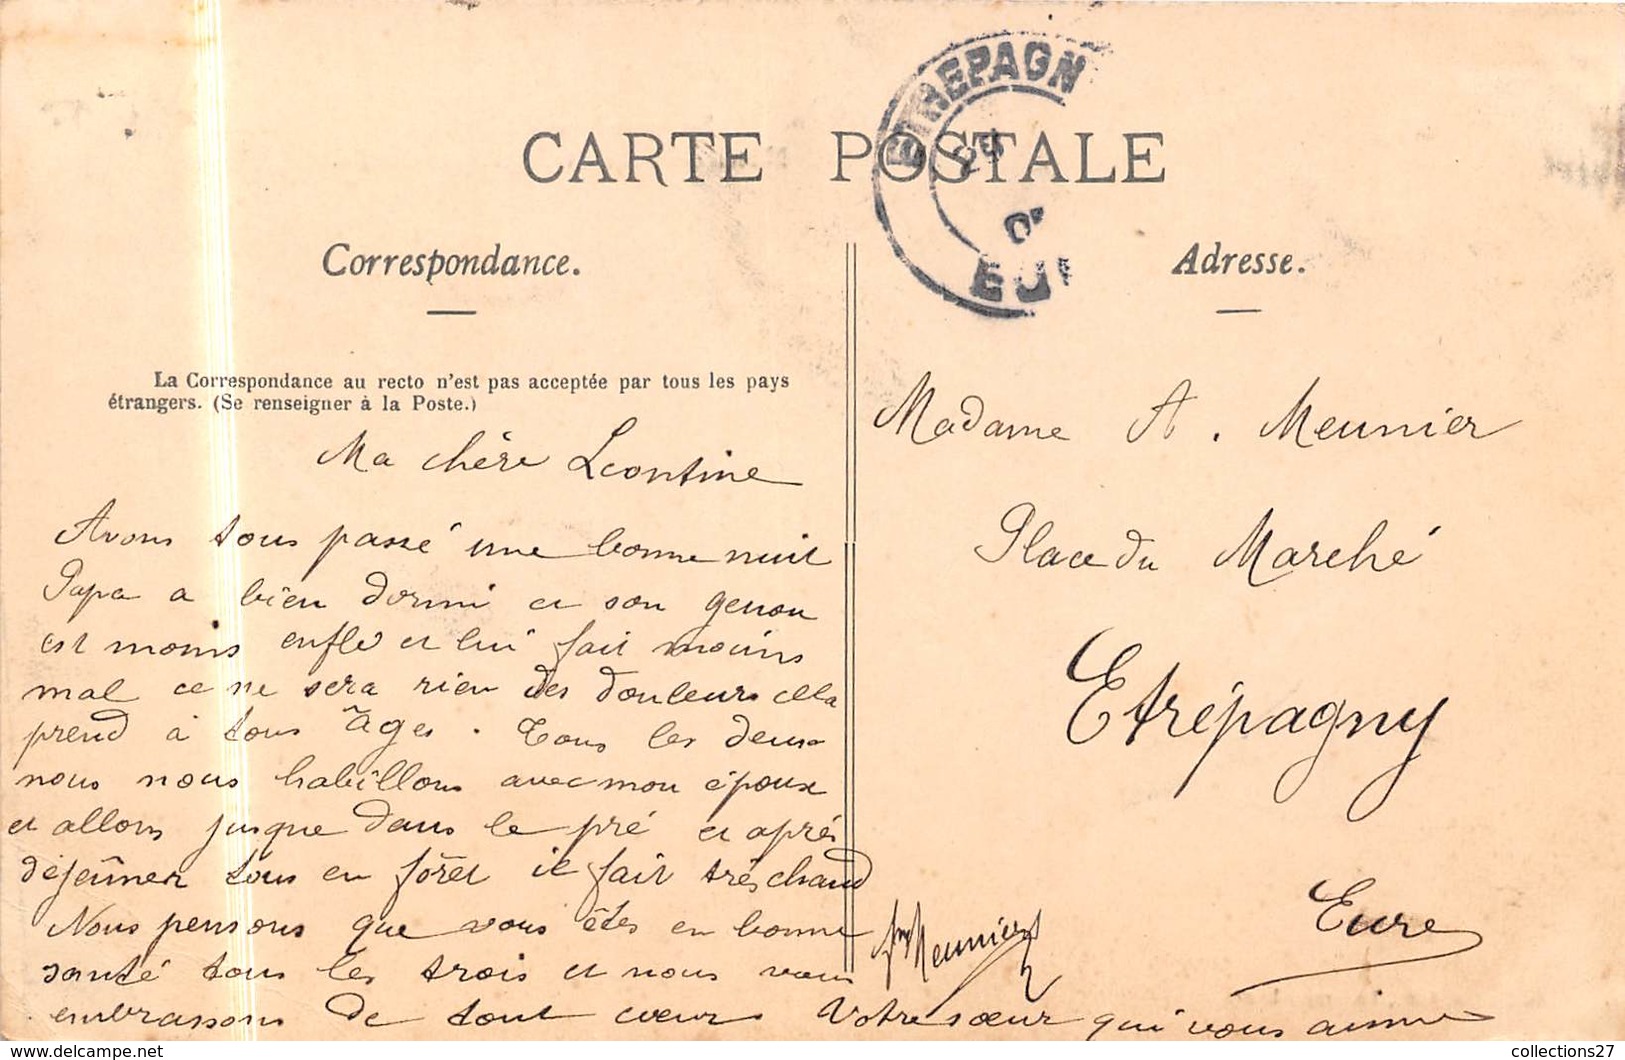 CARTE POSTALE
ETREPAGN
05
EU
Correspondance.
La Correspondance au recto n'est pas acceptée par tous les pays
étrangers. (Se renseigner à la Poste.)
Ma chère Léontine
Avons tous passé une bonne nuit
Papa a bien dormi et son genou
est moins enflé et lui fait moins
mal ce ne sera rien des douleurs cela
prend à tous âges. Tous les deux
nous nous habillons avec mon époux
et allons jusque dans le pré et après
déjeûner tous en fôret il fait très chaud
Nous pensons que vous êtes en bonne
santé tous les trois et nous vous
embrassons de tout cœur Votre sœur qui vous aime
Meunier
Adresse.
Madame A. Meunier
Place du Marché
Etrépagny
Eure
collections27